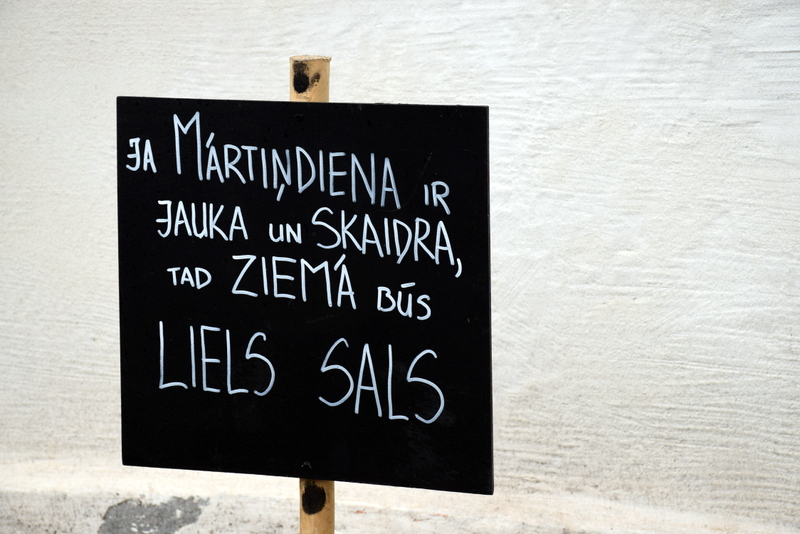 JA MĀRTIŅDIENA IR
JAUKA UN SKAIDRA,
TAD ZIEMĀ BŪS
LIELS SALS